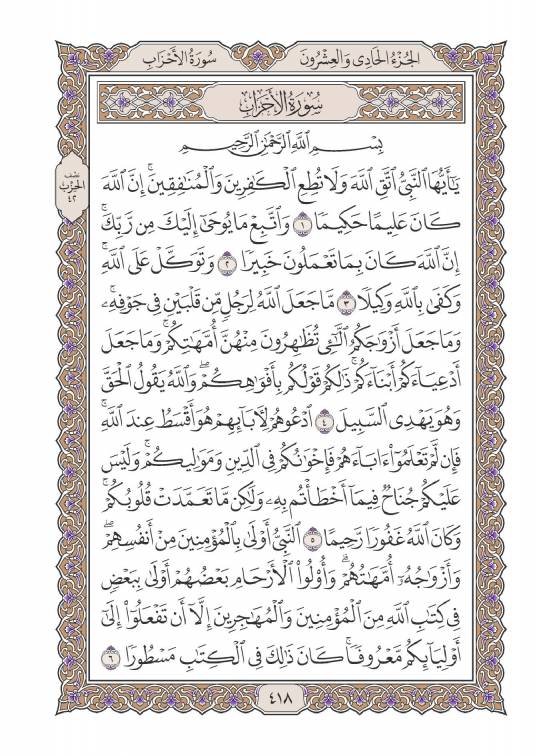 الجُزْءُ الحَادِى وَالعِشْرُونَ
سُورَةُ الأَحْزَابِ
سُورَةُ الأَحْزَابِ
بِسْمِ ٱللَّهِ ٱلرَّحْمَٰنِ ٱلرَّحِيمِ
يَـٰٓأَيُّهَا ٱلنَّبِىُّ ٱتَّقِ ٱللَّهَ وَلَا تُطِعِ ٱلْكَـٰفِرِينَ وَٱلْمُنَـٰفِقِينَۚ إِنَّ ٱللَّهَ
نصف
الحزب
٤٢
كَانَ عَلِيمًا حَكِيمًا ١ وَٱتَّبِعْ مَا يُوحَىٰٓ إِلَيْكَ مِن رَّبِّكَۚ
إِنَّ ٱللَّهَ كَانَ بِمَا تَعْمَلُونَ خَبِيرًا ٢ وَتَوَكَّلْ عَلَى ٱللَّهِۚ
وَكَفَىٰ بِٱللَّهِ وَكِيلًا ٣ مَّا جَعَلَ ٱللَّهُ لِرَجُلٍ مِّن قَلْبَيْنِ فِى جَوْفِهِۦۚ
وَمَا جَعَلَ أَزْوَٰجَكُمُ ٱلَّـٰٓـِٔى تُظَـٰهِرُونَ مِنْهُنَّ أُمَّهَـٰتِكُمْۚ وَمَا جَعَلَ
أَدْعِيَآءَكُمْ أَبْنَآءَكُمْۚ ذَٰلِكُمْ قَوْلُكُم بِأَفْوَٰهِكُمْۖ وَٱللَّهُ يَقُولُ ٱلْحَقَّ
وَهُوَ يَهْدِى ٱلسَّبِيلَ ٤ ٱدْعُوهُمْ لِـَٔابَآئِهِمْ هُوَ أَقْسَطُ عِندَ ٱللَّهِۚ
فَإِن لَّمْ تَعْلَمُوٓا۟ ءَابَآءَهُمْ فَإِخْوَٰنُكُمْ فِى ٱلدِّينِ وَمَوَٰلِيكُمْۚ وَلَيْسَ
عَلَيْكُمْ جُنَاحٌ فِيمَآ أَخْطَأْتُم بِهِۦ وَلَـٰكِن مَّا تَعَمَّدَتْ قُلُوبُكُمْۚ
وَكَانَ ٱللَّهُ غَفُورًا رَّحِيمًا ٥ ٱلنَّبِىُّ أَوْلَىٰ بِٱلْمُؤْمِنِينَ مِنْ أَنفُسِهِمْۖ
وَأَزْوَٰجُهُۥٓ أُمَّهَـٰتُهُمْۗ وَأُو۟لُوا۟ ٱلْأَرْحَامِ بَعْضُهُمْ أَوْلَىٰ بِبَعْضٍ
فِى كِتَـٰبِ ٱللَّهِ مِنَ ٱلْمُؤْمِنِينَ وَٱلْمُهَـٰجِرِينَ إِلَّآ أَن تَفْعَلُوٓا۟ إِلَىٰٓ
أَوْلِيَآئِكُم مَّعْرُوفًاۚ كَانَ ذَٰلِكَ فِى ٱلْكِتَـٰبِ مَسْطُورًا ٦
٤١٨